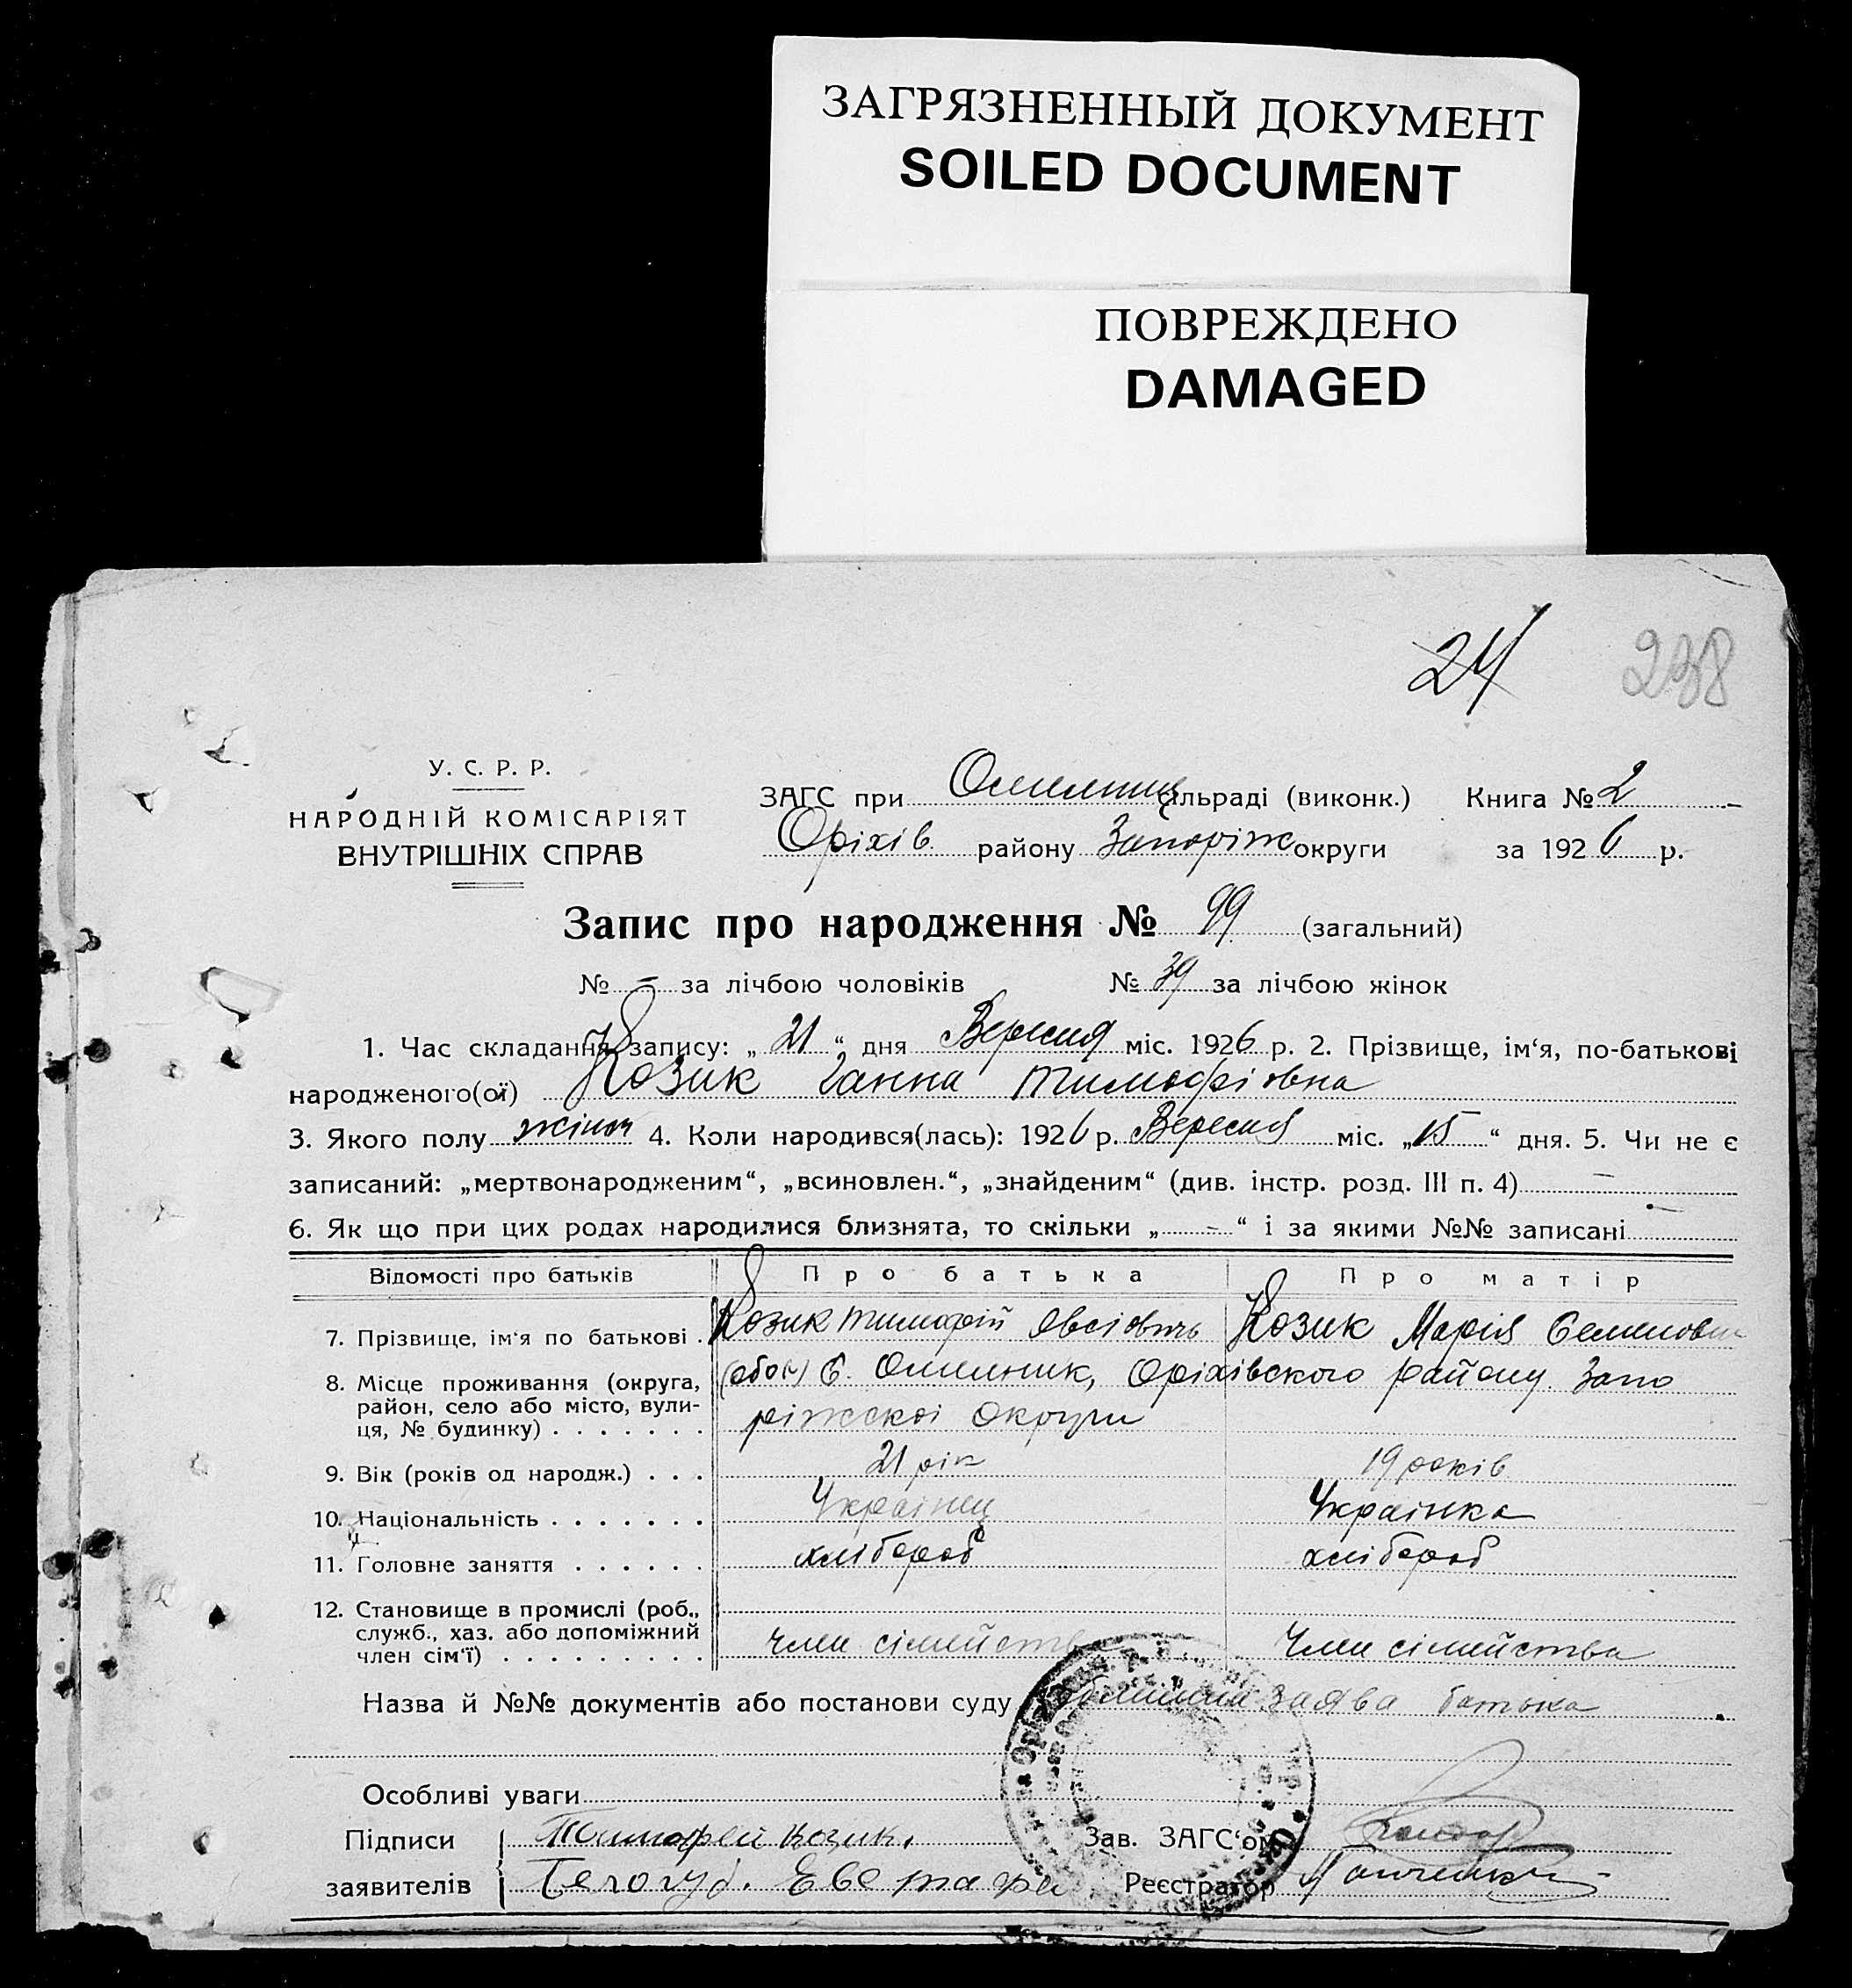 ЗАГРЯЗНЕННЫЙ ДОКУМЕНТ
SOILED DOCUMENT
ПОВРЕЖДЕНО
DAMAGED
24 238
У. С. Р. Р.
НАРОДНІЙ КОМІСАРІЯТ
ВНУТРІШНІХ СПРАВ
ЗАГС при Омельниц сільраді (виконк.) Книга № 2
Оріхів району Запоріж округи за 1926 р.
Запис про народження № 99 (загальний)
№ – за лічбою чоловіків № 39 за лічбою жінок
1. Час складання запису: „ 21 “ дня Вересня міс. 1926 р. 2. Прізвище, ім‘я, по-батькові
народженого(ої) Козик Ганна Тимофіовна
3. Якого полу жіноч 4. Коли народився(лась): 1926 р. Вересня міс. „15“ дня. 5. Чи не є
записаний: „мертвонародженим“, „всиновлен.“, „знайденим“ (див. інстр. розд. III п. 4) –
6. Як що при цих родах народилися близнята, то скільки „ – “ і за якими №№ записані –
Відомості про батьків Про батька Про матір
7. Прізвище, ім‘я по батькові . Козик Тимофій Овсіович Козик Марія Семеновн
8. Місце проживання (округа, (обок) С. Омельник, Оріхівского району Запо
район, село або місто, вули-
ця, № будинку) . . . . . . . ріжскоі Округи
9. Вік (років од народж.) . . . 21 рік 19 років
10. Національність . . . . . . . Украінец Украінка
11. Головне заняття . . . . . . хлібороб хлібороб
12. Становище в промислі (роб.,
служб., хаз. або допоміжний
член сім‘ї) . . . . . . . . . член сімейства Член сімейства
Назва й №№ документів або постанови суду заява батька
Особливі уваги
Підписи Тимофей Козик. Зав. ЗАГС‘ом
заявителів Белогуб. Реєстратор